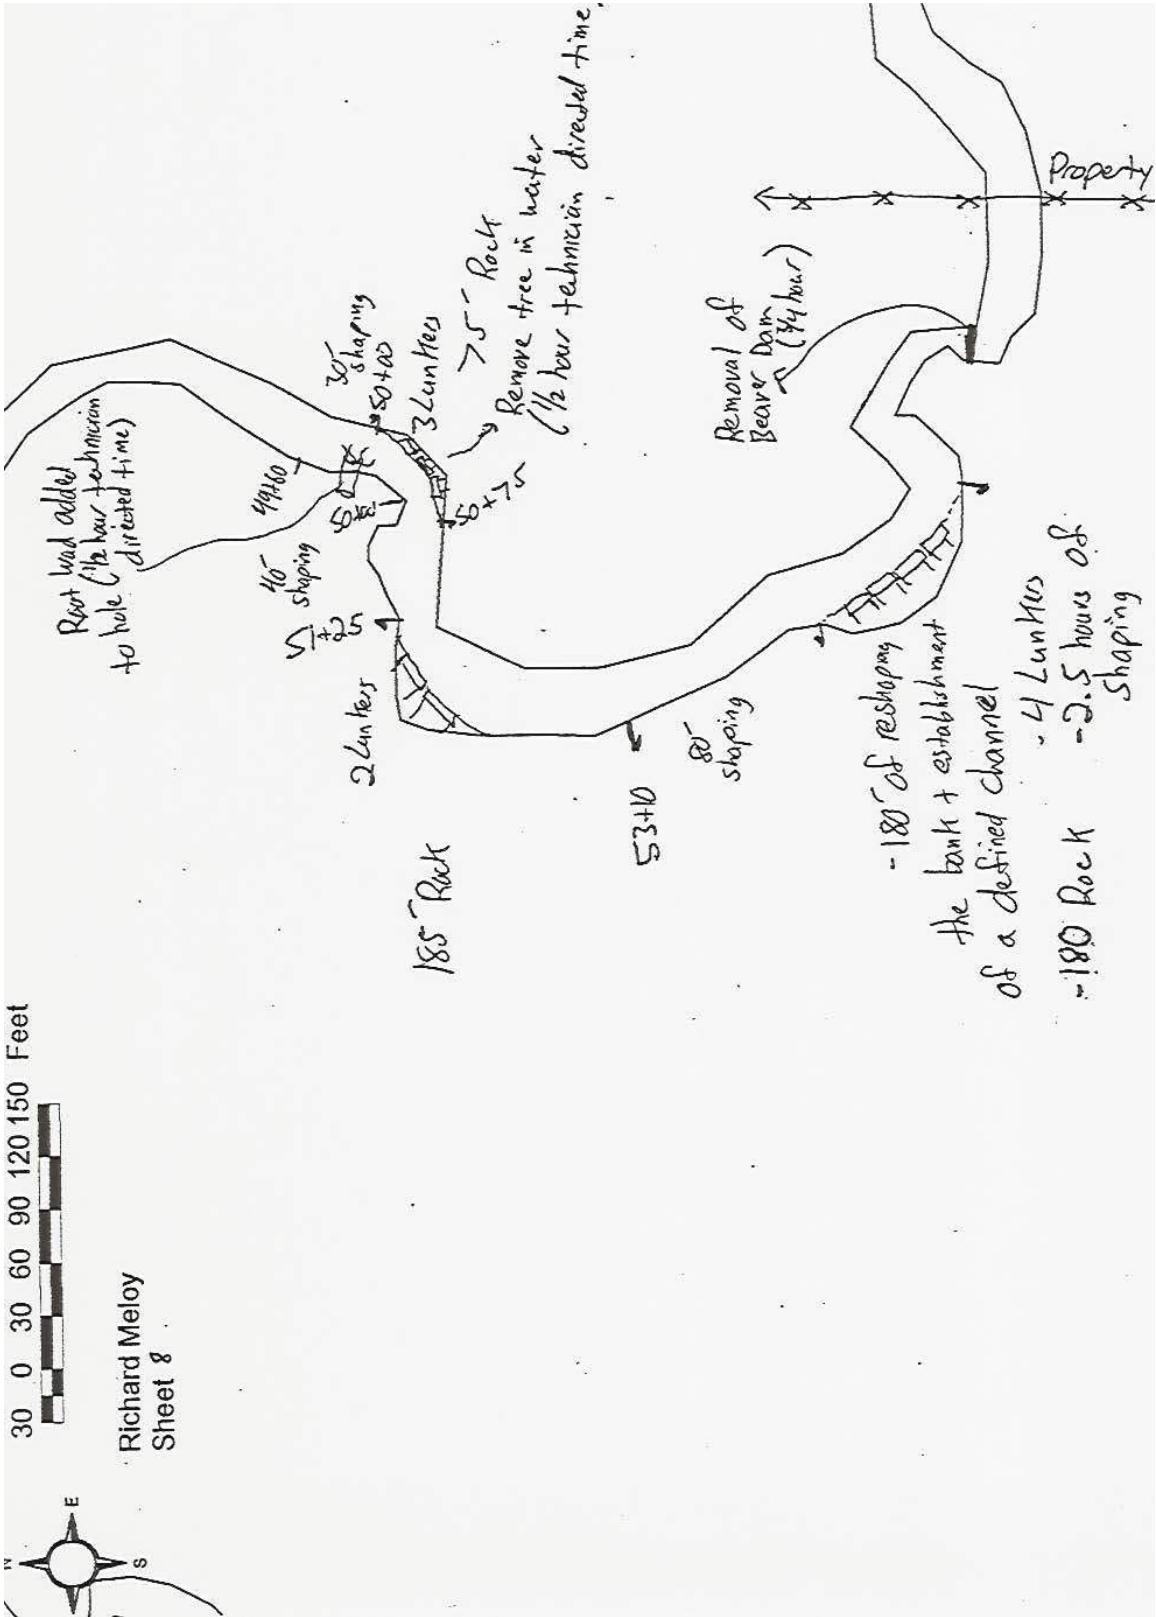 N
E
S
30 0 30 60 90 120 150 Feet
Richard Meloy
Sheet 8
Root wad added
to hole (1/2 hour technician
directed time)
49+60
50+00
40'
shaping
51+25
2 Lunkers
185' Rock
30'
shaping
50+00
3 Lunkers
75' Rock
Remove tree in water
(1/2 hour technician directed time)
50+75
53+10
80'
shaping
Removal of
Beaver Dam
(3/4 hour)
Property
-180' of reshaping
the bank + establishment
of a defined channel
- 4 Lunkers
-180 Rock
-2.5 hours of
shaping